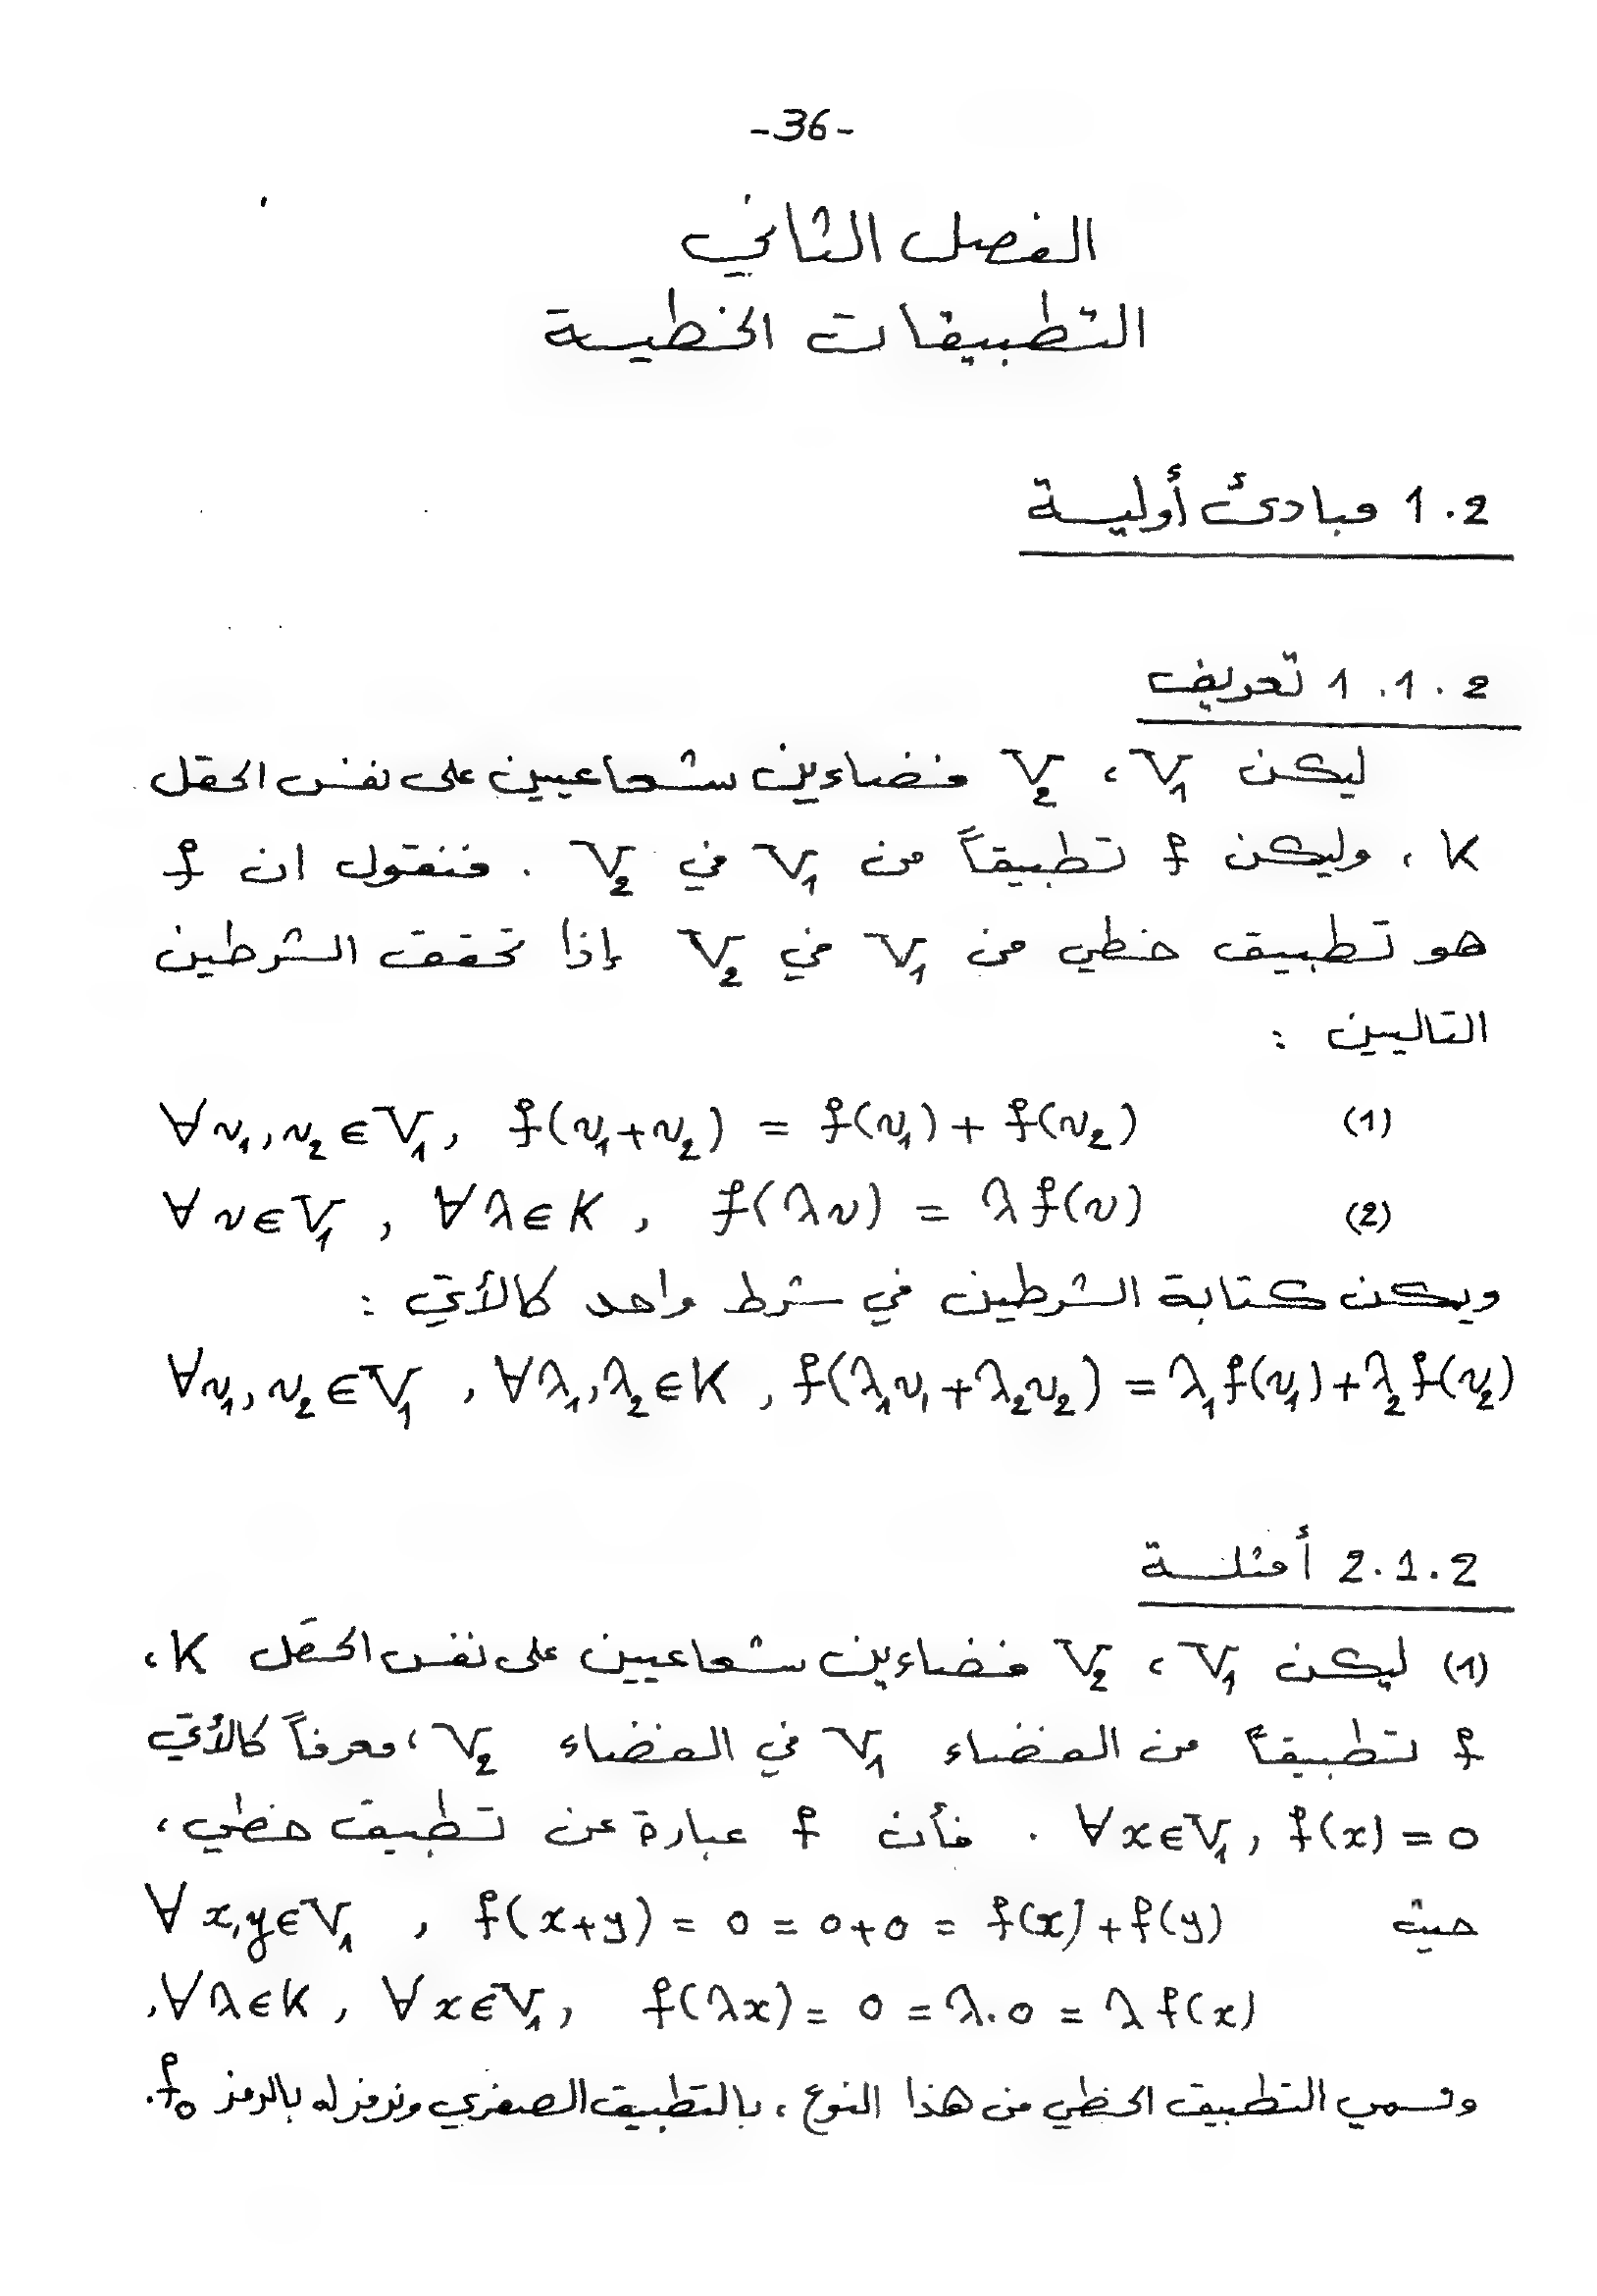 -36-
الفصل الثاني
التطبيقات الخطية
1.2 مبادئ أولية
1.1.2 تعريف
ليكن V₁ ، V₂ فضاءين شعاعيين على نفس الحقل
K ، وليكن f تطبيقاً من V₁ في V₂ . فنقول ان f
هو تطبيق خطي من V₁ في V₂ إذا تحقق الشرطين
التاليين :
∀v₁,v₂∈V₁, f(v₁+v₂) = f(v₁)+f(v₂) (1)
∀v∈V₁, ∀λ∈K, f(λv) = λf(v) (2)
ويمكن كتابة الشرطين في شرط واحد كالأتي :
∀v₁,v₂∈V₁, ∀λ₁,λ₂∈K, f(λ₁v₁+λ₂v₂) = λ₁f(v₁)+λ₂f(v₂)
2.1.2 أمثلة
(1) ليكن V₁ ، V₂ فضاءين شعاعيين على نفس الحقل K ،
f تطبيقاً من الفضاء V₁ في الفضاء V₂ ، معرفاً كالأتي
∀x∈V₁, f(x)=0 . فأن f عبارة عن تطبيق خطي ،
حيث ∀x,y∈V₁, f(x+y) = 0 = 0+0 = f(x)+f(y)
∀λ∈K, ∀x∈V₁, f(λx) = 0 = λ.0 = λf(x),
ونسمي التطبيق الخطي من هذا النوع ، بالتطبيق الصفري ونرمز له بالرمز f₀.